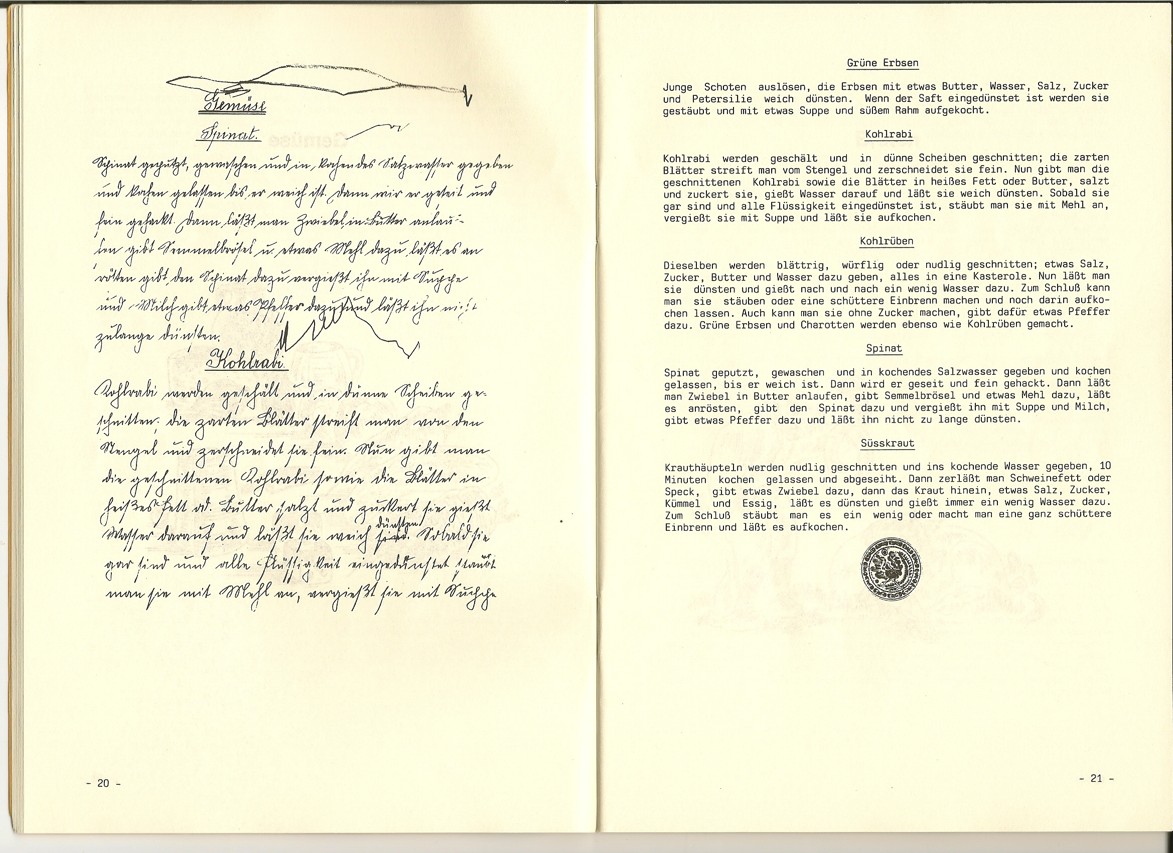 Gemüse
Spinat.
Spinat geputzt, gewaschen und in kochendes Salzwasser gegeben
und kochen gelassen bis er weich ist. Dann wir er geseit und
fein gehackt. Dann läßt man Zwiebel in Butter anlau-
fen gibt Semmelbrösel u. etwas Mehl dazu läßt es an
rösten gibt den Spinat dazu vergießt ihn mit Suppe
und Milch gibt etwas Pfeffer dazu und läßt ihn nicht
zulange dünsten.
Kohlrabi.
Kohlrabi werden geschält und in dünne Scheiben ge-
schnitten; die zarten Blätter streift man von den
Stengel und zerschneidet sie fein. Nun gibt man
die geschnittenen Kohlrabi sowie die Blätter in
heißes Fett od. Butter salzt und zuckert sie gießt
Wasser darauf und läßt sie weich dünsten. Sobald sie
gar sind und alle Flüssigkeit eingedünstet staubt
man sie mit Mehl an, vergießt sie mit Suppe
- 20 -
Grüne Erbsen
Junge Schoten auslösen, die Erbsen mit etwas Butter, Wasser, Salz, Zucker
und Petersilie weich dünsten. Wenn der Saft eingedünstet ist werden sie
gestäubt und mit etwas Suppe und süßem Rahm aufgekocht.
Kohlrabi
Kohlrabi werden geschält und in dünne Scheiben geschnitten; die zarten
Blätter streift man vom Stengel und zerschneidet sie fein. Nun gibt man die
geschnittenen Kohlrabi sowie die Blätter in heißes Fett oder Butter, salzt
und zuckert sie, gießt Wasser darauf und läßt sie weich dünsten. Sobald sie
gar sind und alle Flüssigkeit eingedünstet ist, stäubt man sie mit Mehl an,
vergießt sie mit Suppe und läßt sie aufkochen.
Kohlrüben
Dieselben werden blättrig, würflig oder nudlig geschnitten; etwas Salz,
Zucker, Butter und Wasser dazu geben, alles in eine Kasterole. Nun läßt man
sie dünsten und gießt nach und nach ein wenig Wasser dazu. Zum Schluß kann
man sie stäuben oder eine schüttere Einbrenn machen und noch darin aufko-
chen lassen. Auch kann man sie ohne Zucker machen, gibt dafür etwas Pfeffer
dazu. Grüne Erbsen und Charotten werden ebenso wie Kohlrüben gemacht.
Spinat
Spinat geputzt, gewaschen und in kochendes Salzwasser gegeben und kochen
gelassen, bis er weich ist. Dann wird er geseit und fein gehackt. Dann läßt
man Zwiebel in Butter anlaufen, gibt Semmelbrösel und etwas Mehl dazu, läßt
es anrösten, gibt den Spinat dazu und vergießt ihn mit Suppe und Milch,
gibt etwas Pfeffer dazu und läßt ihn nicht zu lange dünsten.
Süsskraut
Krauthäupteln werden nudlig geschnitten und ins kochende Wasser gegeben, 10
Minuten kochen gelassen und abgeseiht. Dann zerläßt man Schweinefett oder
Speck, gibt etwas Zwiebel dazu, dann das Kraut hinein, etwas Salz, Zucker,
Kümmel und Essig, läßt es dünsten und gießt immer ein wenig Wasser dazu.
Zum Schluß stäubt man es ein wenig oder macht man eine ganz schüttere
Einbrenn und läßt es aufkochen.
- 21 -